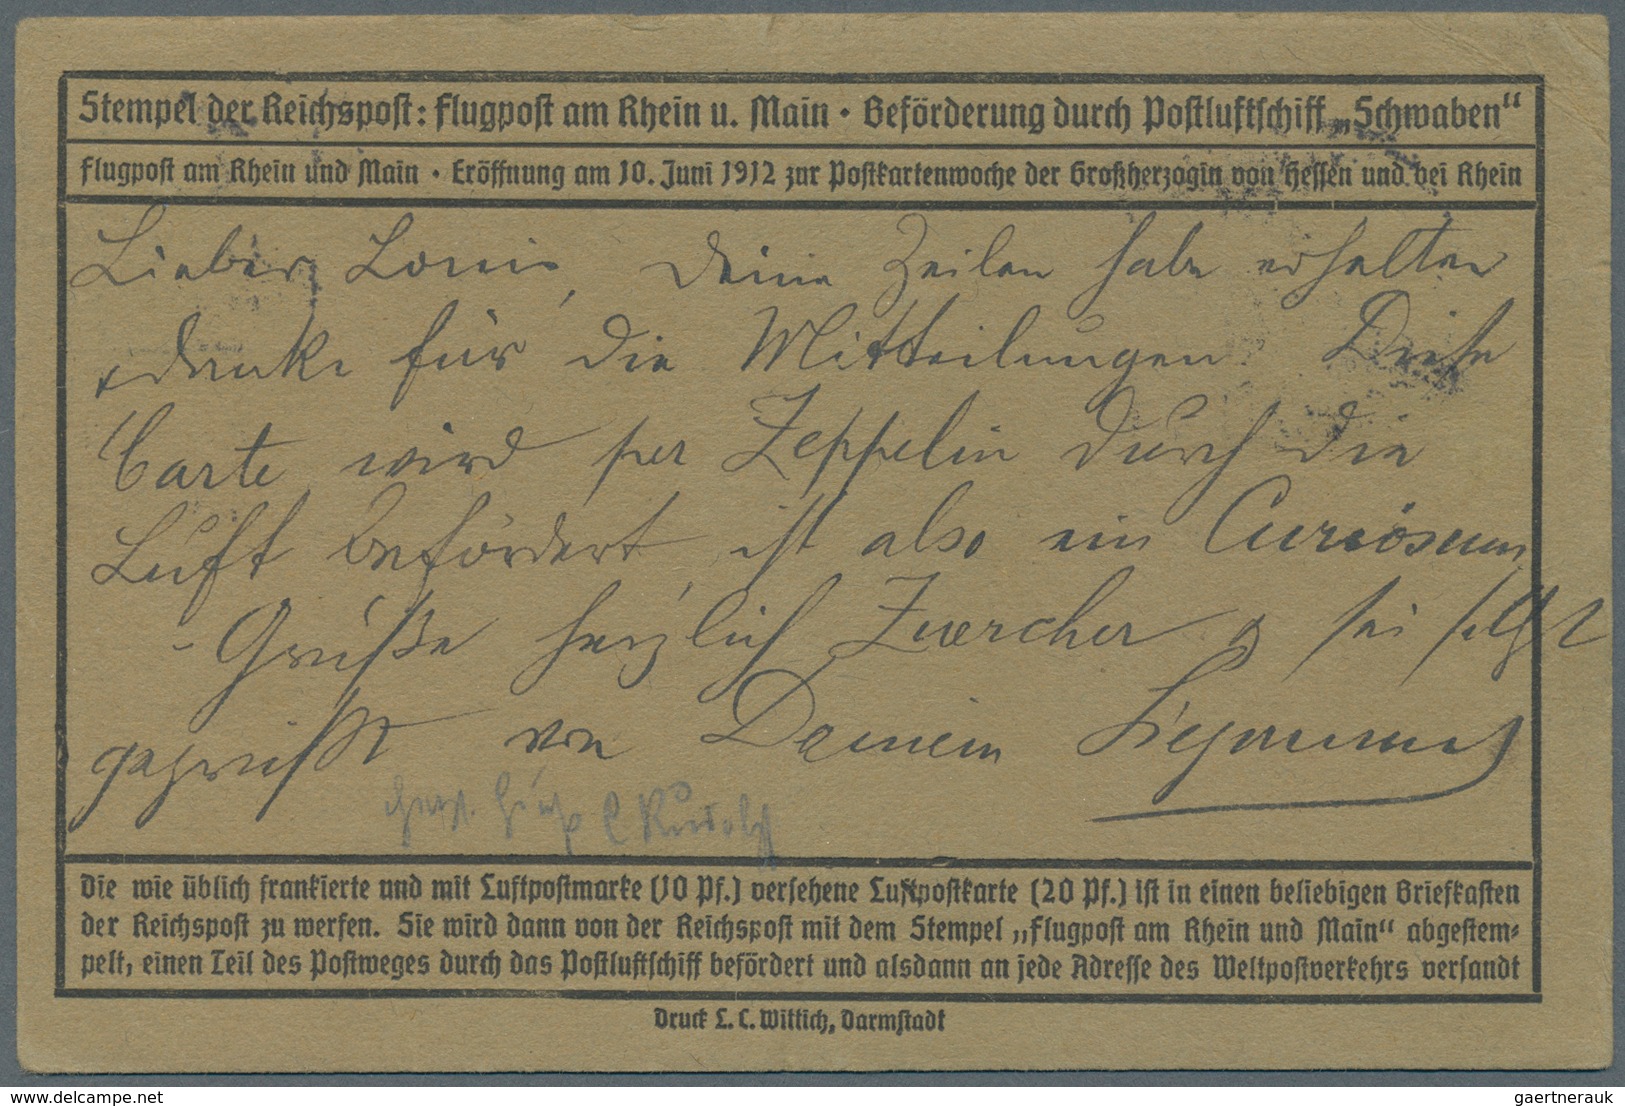 Stempel der Reichspost: Flugpost am Rhein u. Main · Beförderung durch Postluftschiff „Schwaben“
Flugpost am Rhein und Main · Eröffnung am 10. Juni 1912 zur Postkartenwoche der Großherzogin von Hessen und bei Rhein
Lieber Louis, Deine Zeilen habe erhalten
& danke für die Mitteilungen. Diese
Carte wird per Zeppelin durch die
Luft befördert, ist also ein Curiosum
- Grüße herzlich Zuercher & sei selbst
gegrüßt von Deinem
Rudolf
Die wie üblich frankierte und mit Luftpostmarke (10 Pf.) versehene Luftpostkarte (20 Pf.) ist in einen beliebigen Briefkasten
der Reichspost zu werfen. Sie wird dann von der Reichspost mit dem Stempel „Flugpost am Rhein und Main“ abgestem-
pelt, einen Teil des Postweges durch das Postluftschiff befördert und alsdann an jede Adresse des Weltpostverkehrs versandt
Druck L. C. Wittich, Darmstadt
delcampe.net
gaertnerauk